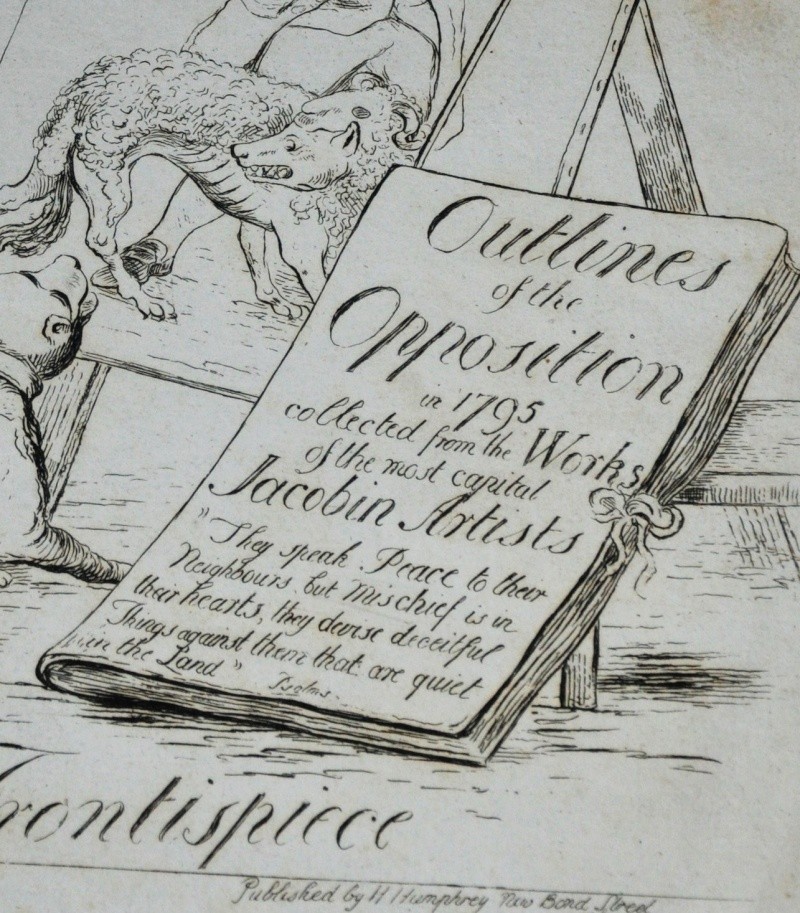 Outlines
of the
Opposition
in 1795
collected from the Works
of the most capital
Jacobin Artists
"They speak Peace to their
Neighbours, but mischief is in
their hearts, they devise deceitful
Things against them that are quiet
in the Land"
Psalms.
Frontispiece
Published by H Humphrey New Bond Street